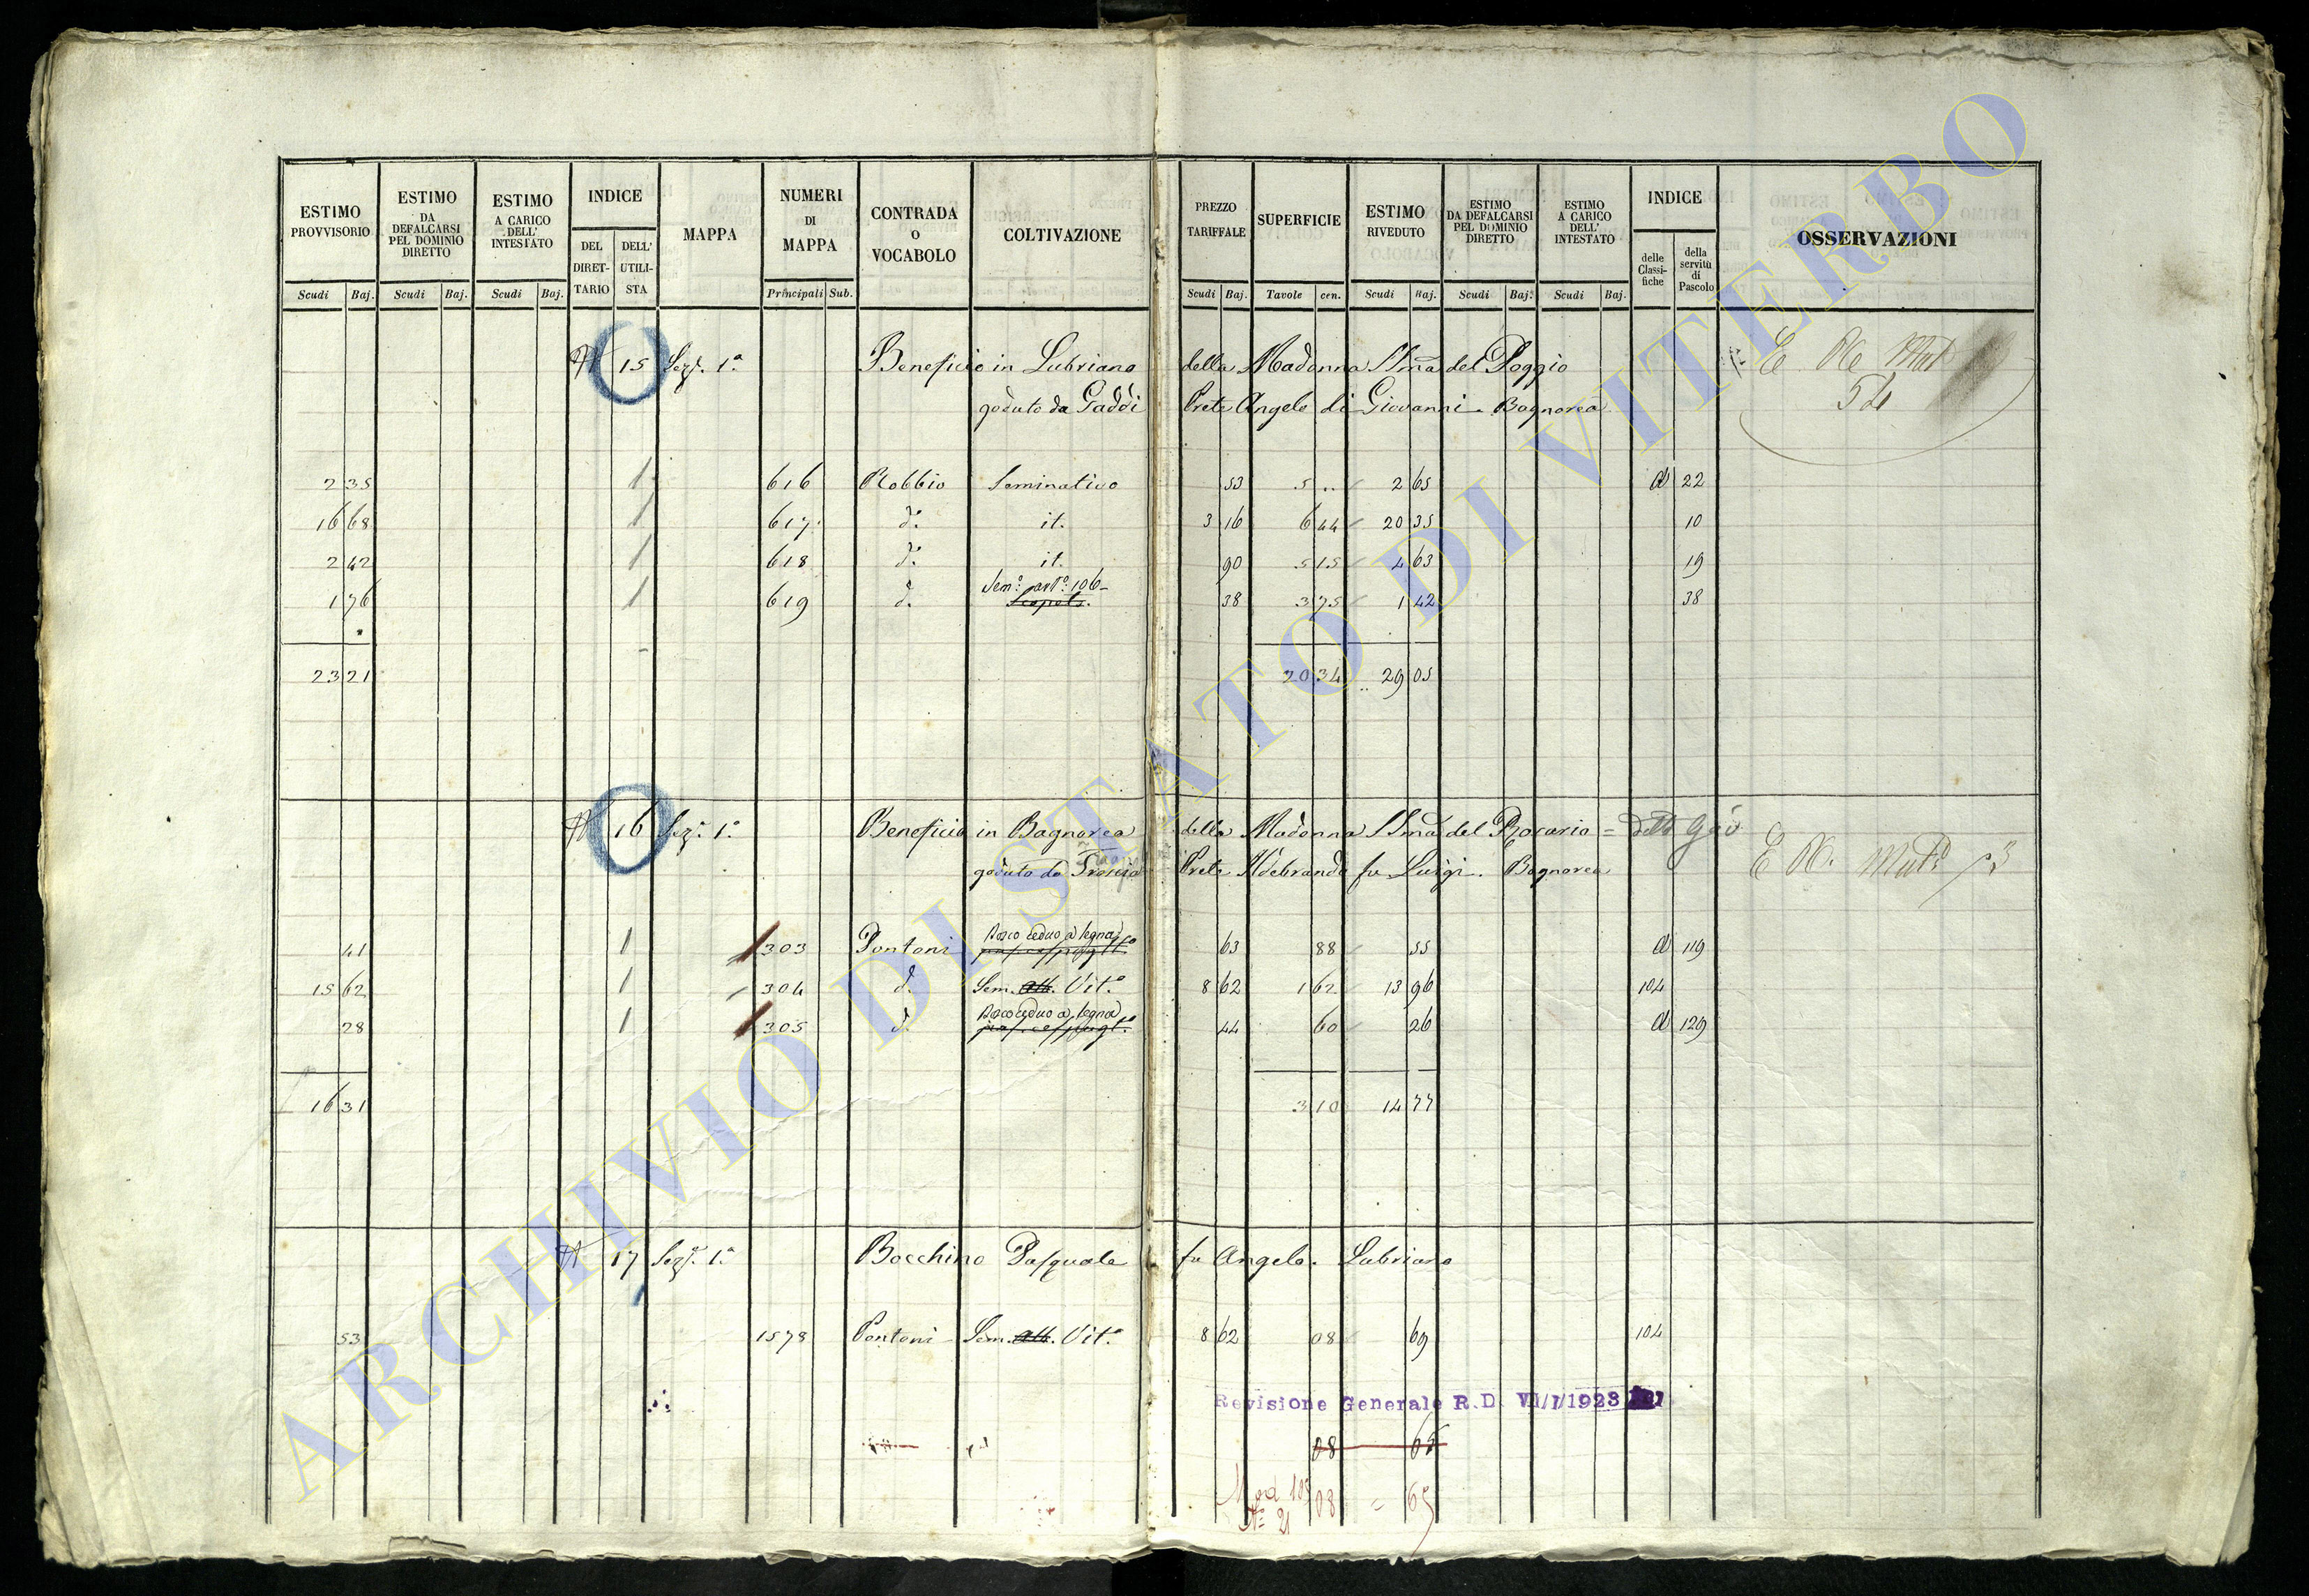 ESTIMO PROVVISORIO
ESTIMO DA DEFALCARSI PEL DOMINIO DIRETTO
ESTIMO A CARICO DELL' INTESTATO
INDICE
DEL DIRETTARIO DELL' UTILISTA
MAPPA
NUMERI DI MAPPA
CONTRADA O VOCABOLO
COLTIVAZIONE
PREZZO TARIFFALE
SUPERFICIE
ESTIMO RIVEDUTO
ESTIMO DA DEFALCARSI PEL DOMINIO DIRETTO
ESTIMO A CARICO DELL' INTESTATO
INDICE
delle Classifiche della servitù di Pascolo
OSSERVAZIONI
Scudi Baj. Scudi Baj. Scudi Baj. Principali Sub. Scudi Baj. Tavole cen. Scudi Baj. Scudi Baj. Scudi Baj.
15 Seze. 1a. Beneficio in Lubriano della Madonna SSma del Poggio
goduto da Gaddi Prete Angelo di Giovanni. Bagnorea
2 35 1 616 Robbio Seminativo 53 5 .. 2 65 22
16 68 1 617 do. it. 3 16 6 44 20 35 10
2 42 1 618 do. it. 90 5 15 4 63 19
Semo. arto. 106
1 76 1 619 do. 38 3 75 1 42 38
23 21 20 34 29 05
16 Seze. 1a. Beneficio in Bagnorea della Madonna SSma del Rosario =
goduto da Prete Ildebrando fu Luigi. Bagnorea
Bosco ceduo a legna
41 1 303 Pontoni 63 88 55 119
15 62 1 304 do. Sem. Alb. Vito. 8 62 1 62 13 96 104
Bosco ceduo a legna
28 1 305 do. 44 60 26 129
16 31 3 10 14 77
17 Seze. 1a. Bocchino Pasquale fu Angelo. Lubriano
53 1578 Pontoni Sem. Alb. Vito. 8 62 08 69 104
Revisione Generale R.D. VII/I/1923
08
08 =
ARCHIVIO DI STATO DI VITERBO